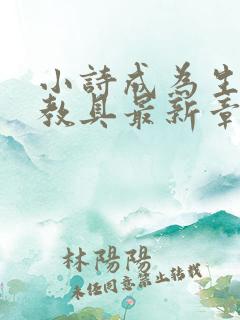 小詩成為生
教具最新章
林陽陽
未經同意禁止轉載